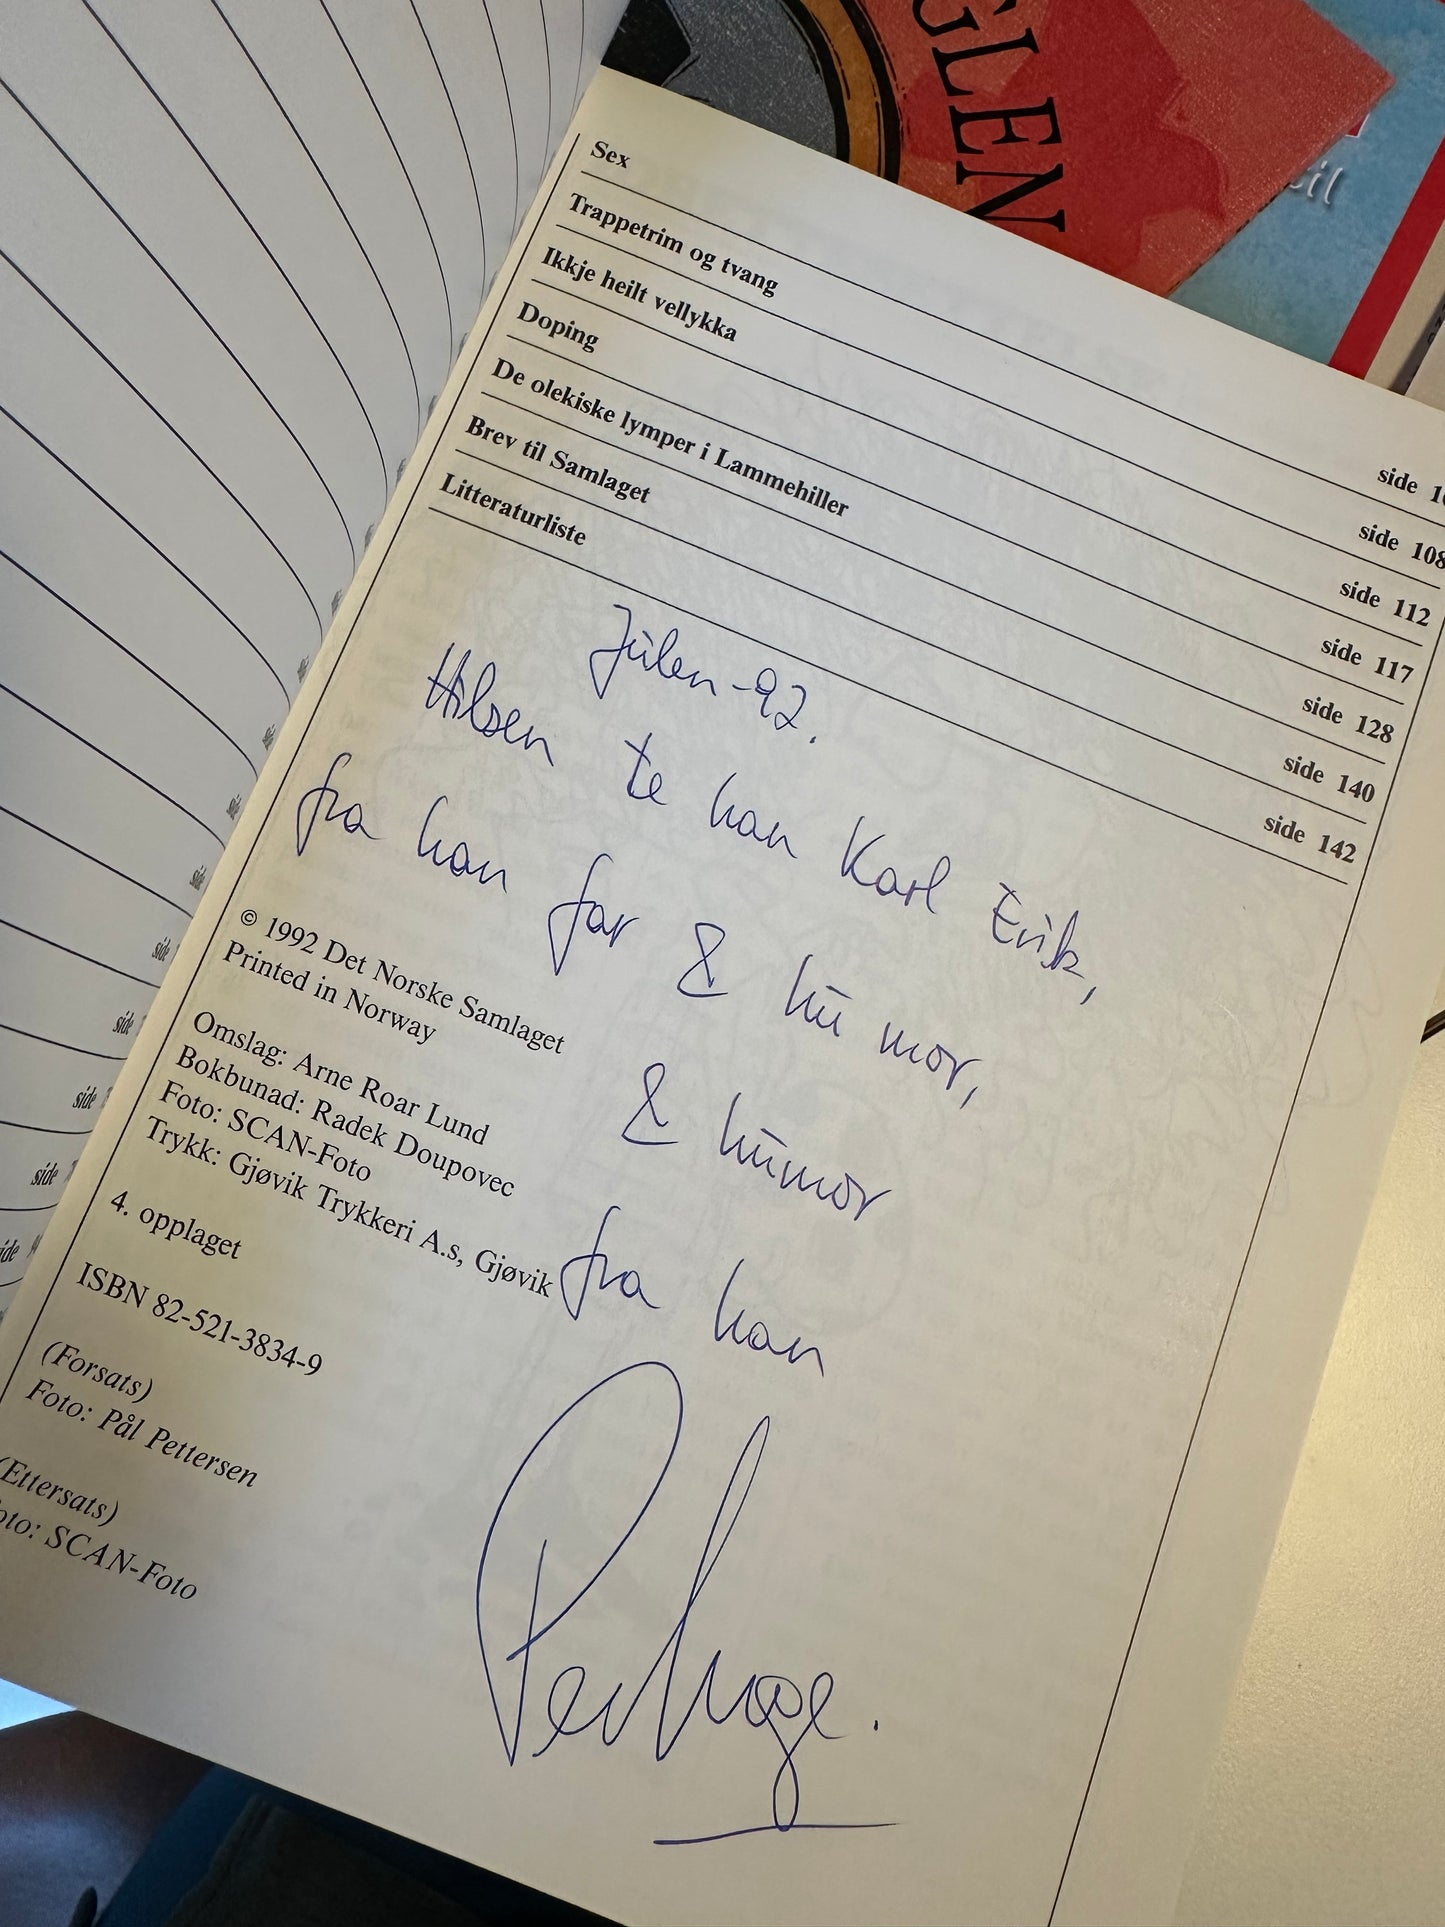 GLEN
Sex side
Trappetrim og tvang side 108
Ikkje heilt vellykka side 112
Doping side 117
De olekiske lymper i Lammehiller side 128
Brev til Samlaget side 140
Litteraturliste side 142
Julen -92.
Hilsen te han Karl Erik,
fra han far & hu mor,
& humor
fra han
Per Inge.
© 1992 Det Norske Samlaget
Printed in Norway
Omslag: Arne Roar Lund
Bokbunad: Radek Doupovec
Foto: SCAN-Foto
Trykk: Gjøvik Trykkeri A.s, Gjøvik
4. opplaget
ISBN 82-521-3834-9
(Forsats)
Foto: Pål Pettersen
(Ettersats)
Foto: SCAN-Foto
side
side
side
side
side
side
side